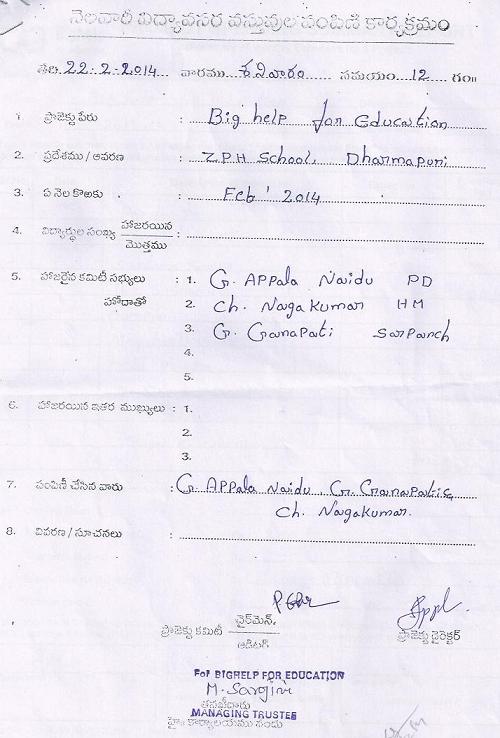 నెలవారీ విద్యావసర వస్తువుల పంపిణి కార్యక్రమం
తేది 22-2-2014 వారము శనివారం సమయం 12 గం॥
1. ప్రాజెక్టు పేరు : Big help for Education
2. ప్రదేశము / ఆవరణ : Z.P.H School, Dharmapuri
3. ఏ నెల కొఱకు : Feb' 2014
4. విద్యార్థుల సంఖ్య హాజరయిన / మొత్తము :
5. హాజరైన కమిటీ సభ్యులు : 1. G. APPala Naidu PD
హోదాతో 2. Ch. Naga Kumar HM
3. G. Ganapati Sarpanch
4.
5.
6. హాజరయిన ఇతర ముఖ్యులు : 1.
2.
3.
7. పంపిణీ చేసిన వారు : G. APPala Naidu G. Ganapati &
Ch. Nagakumar.
8. వివరణ / సూచనలు :
ప్రాజెక్టు కమిటీ చైర్‌మెన్ / ఆడిటర్ ప్రాజెక్టు డైరెక్టర్
For BIGHELP FOR EDUCATION
M. Sarojini
MANAGING TRUSTEE